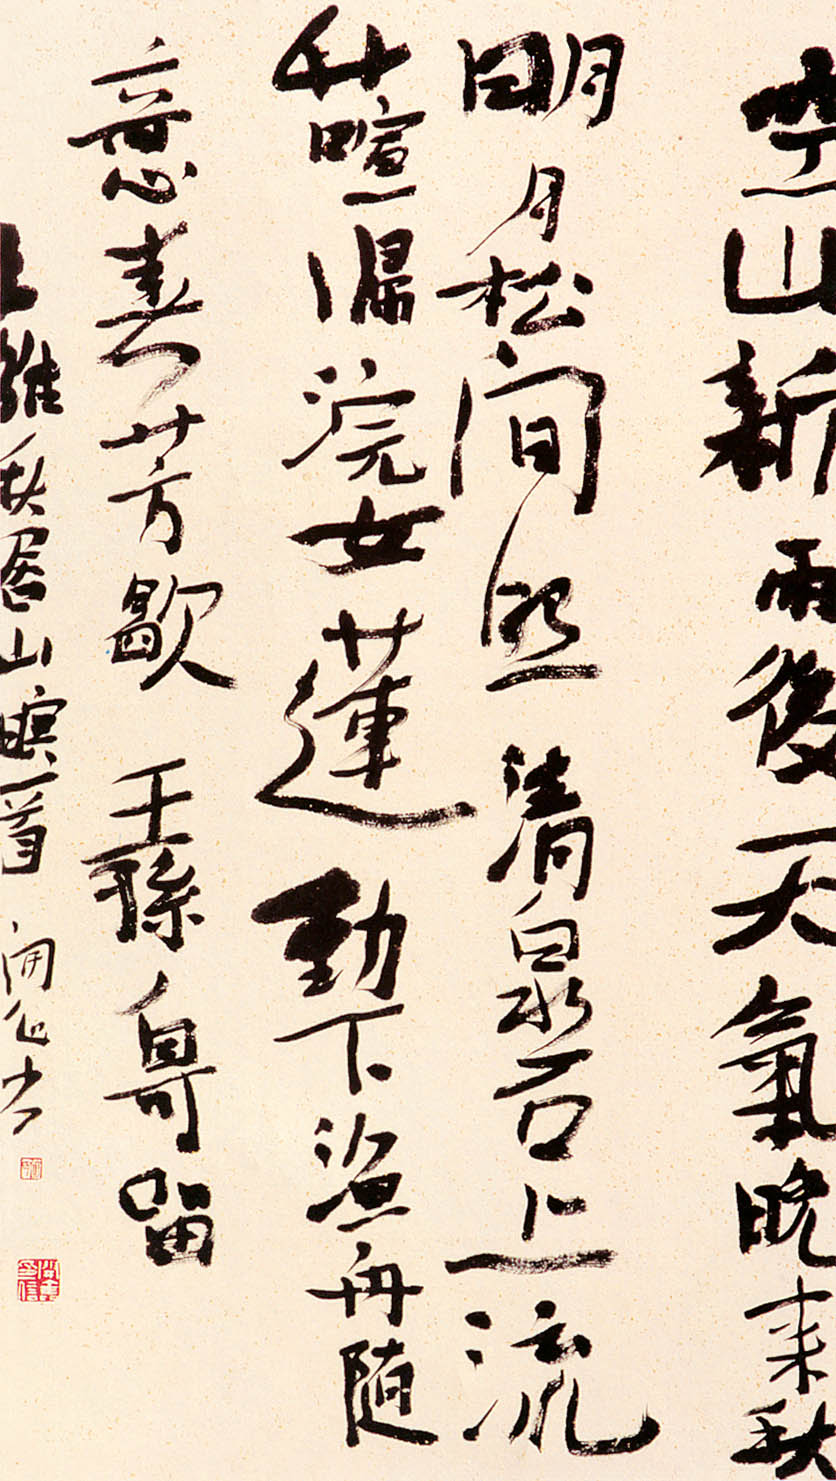 空山新雨後天氣晚來秋
明月松间照清泉石上流
竹喧歸浣女蓮動下漁舟随
意春芳歇王孫自可留
王維秋居山暝一首